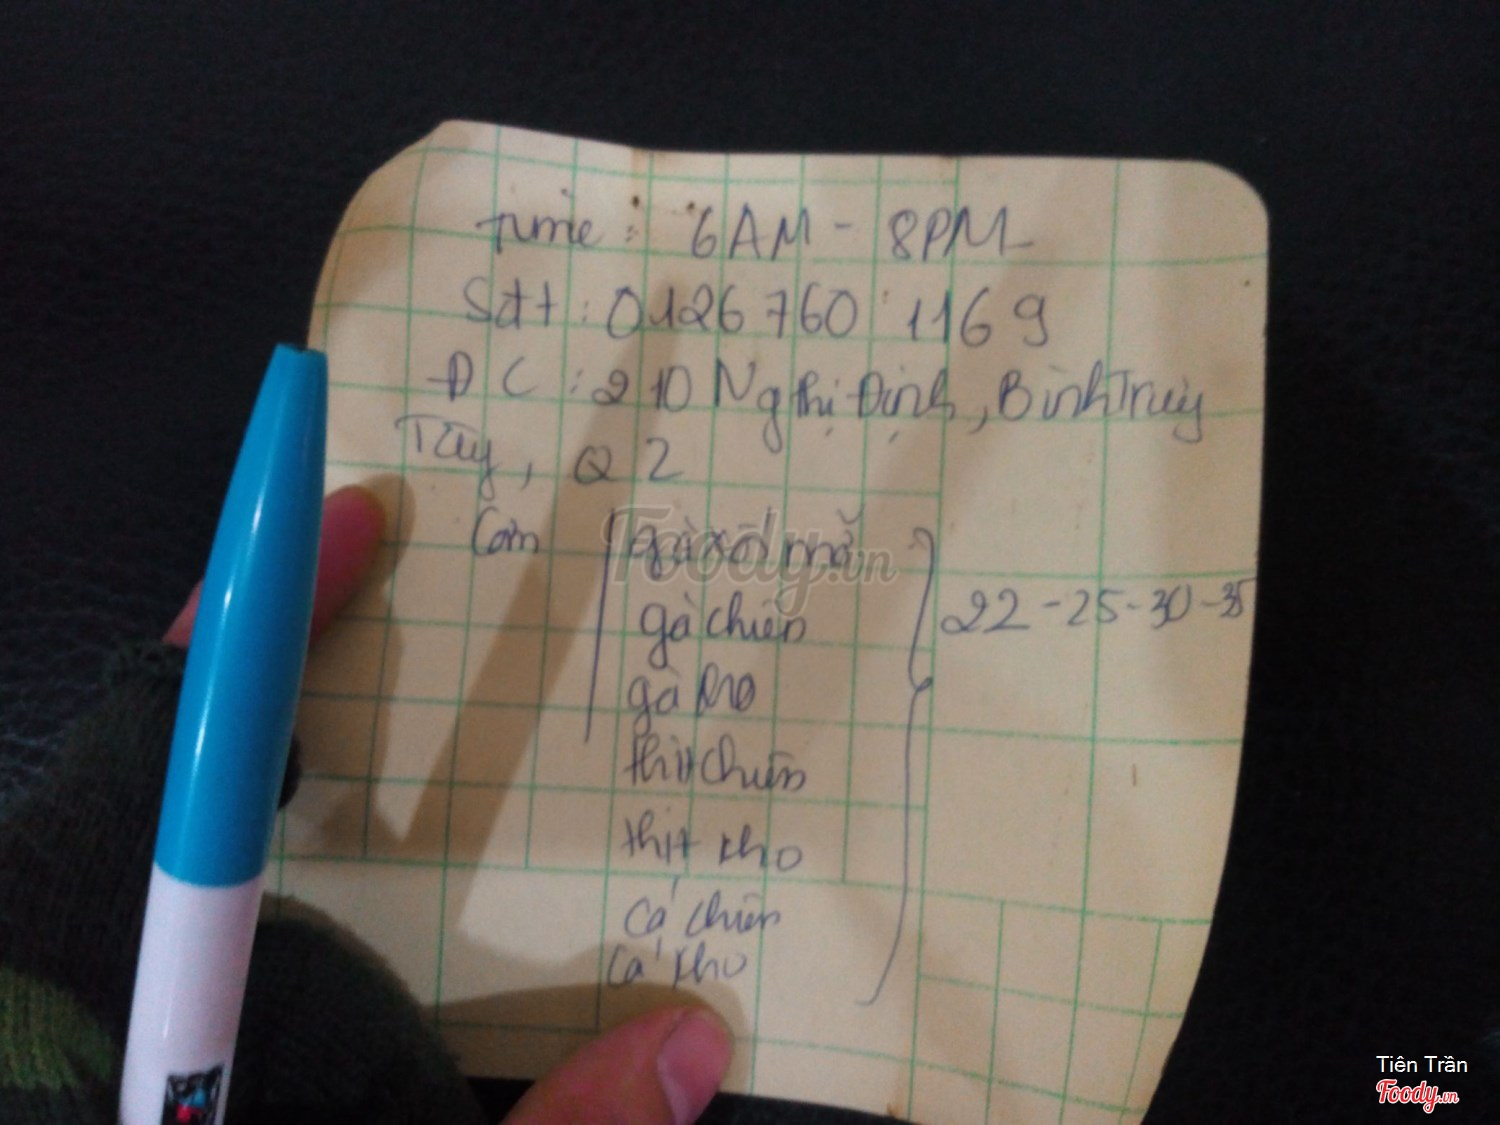 time : 6AM - 8PM
Sđt : 0126 760 1169
ĐC : 210 Ng Thị Định, Bình Trưng
Tây, Q 2
Cơm gà xối mỡ
gà chiên
gà kho
thịt chiên
22 - 25 - 30 - 35
thịt kho
cá chiên
cá kho
Foody.vn
Tiên Trần
Foody.vn